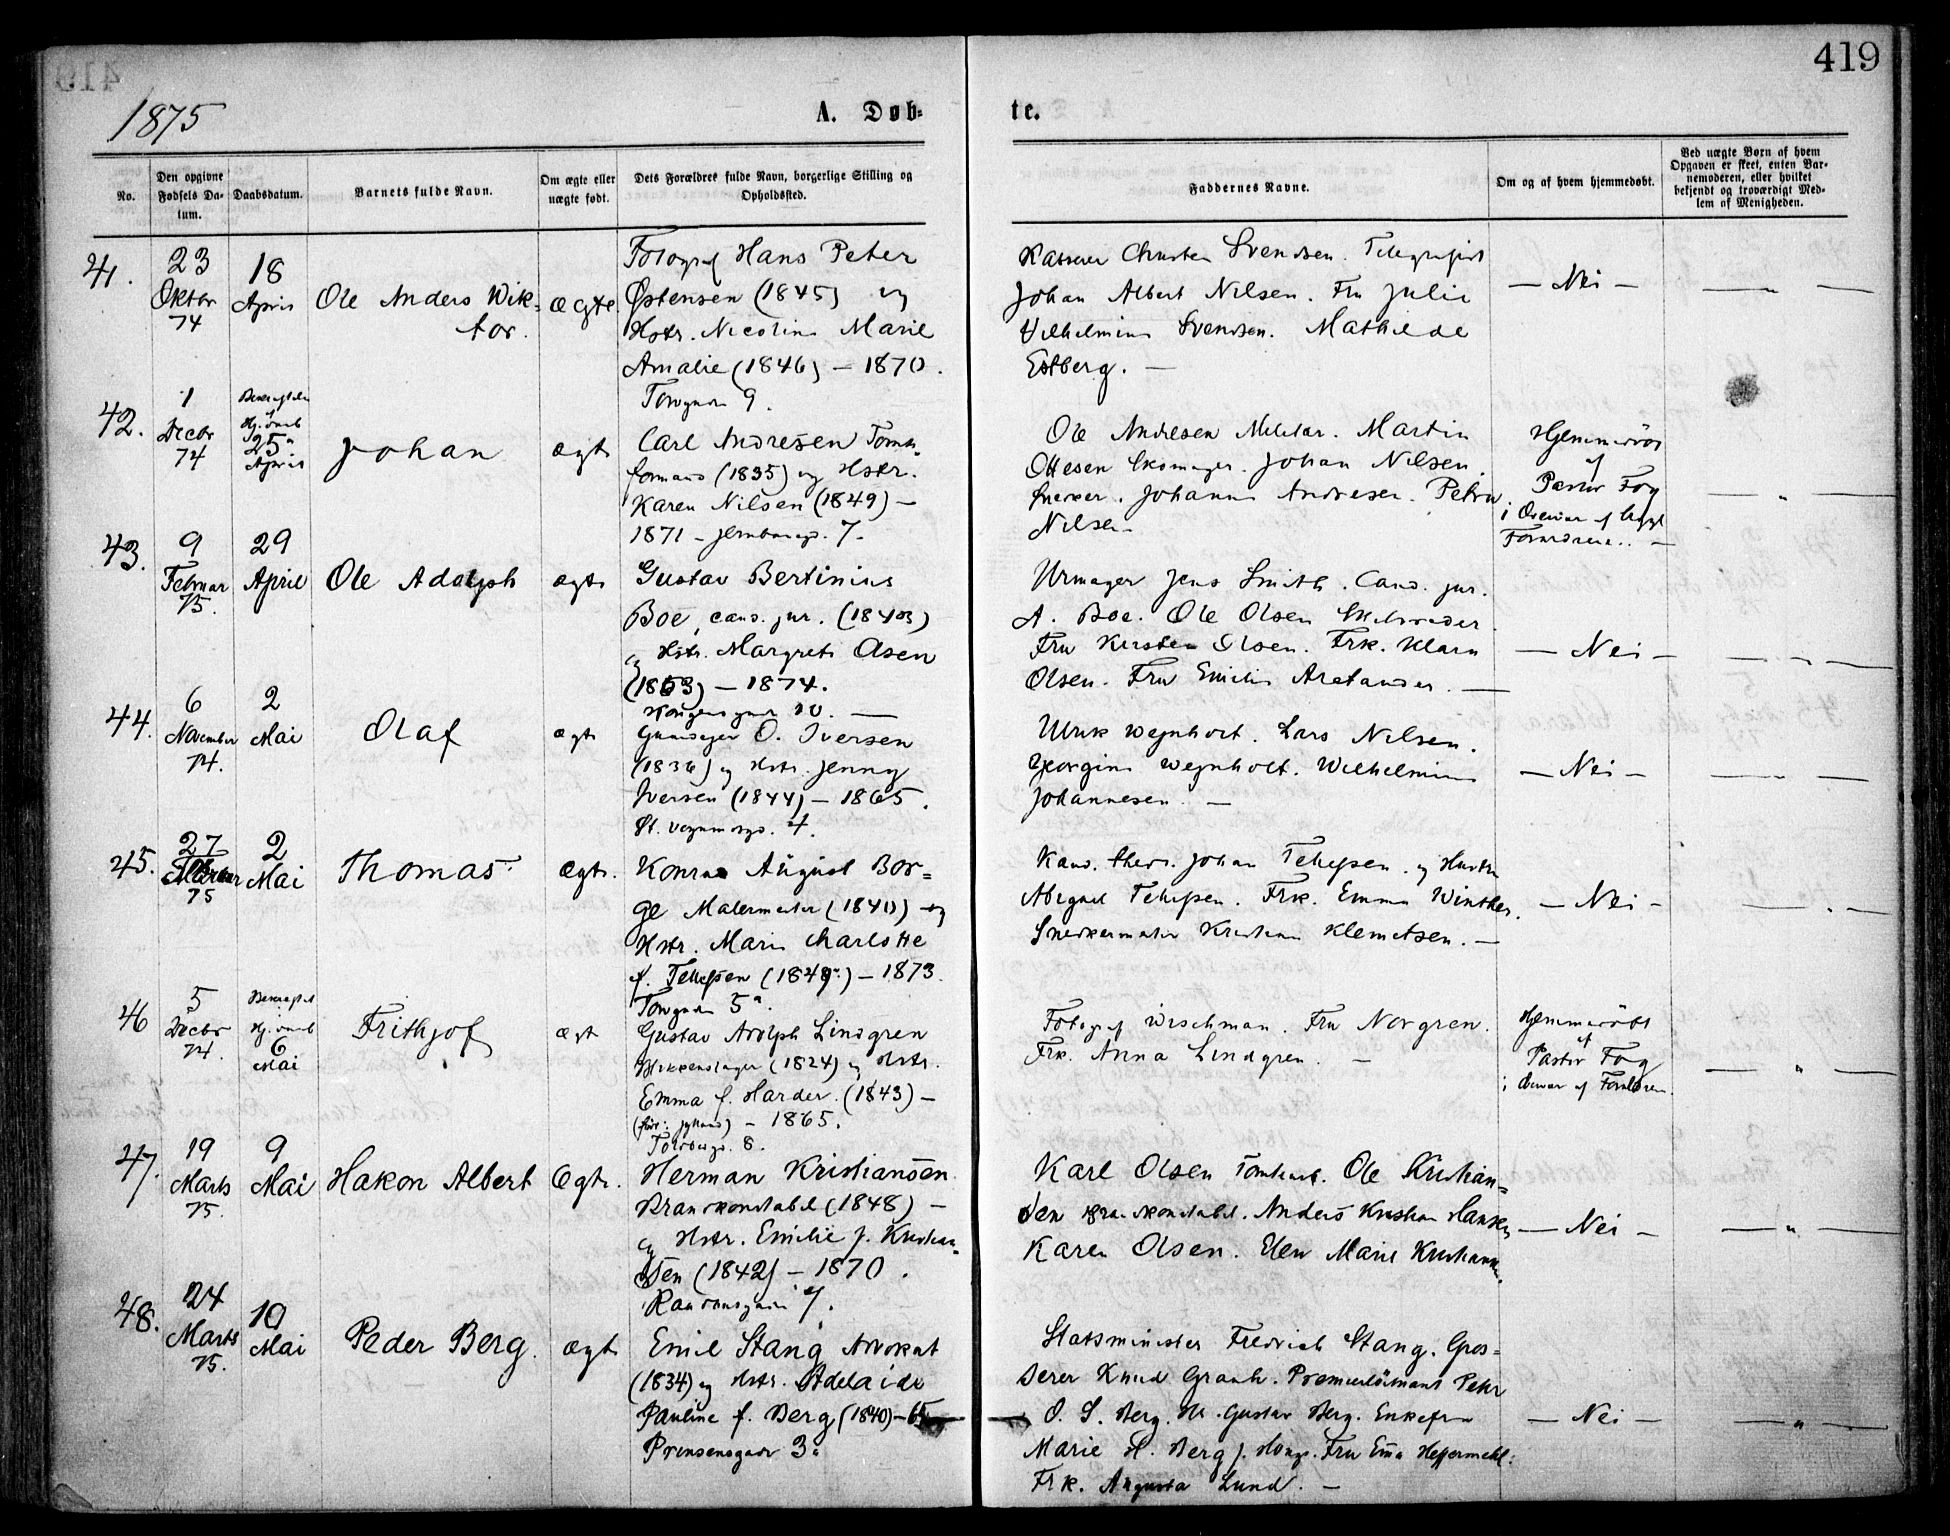 419
1875
A. Døb-
te.
No.
Den opgivne Fødsels Datum.
Daabsdatum.
Barnets fulde Navn.
Om ægte eller uægte født.
Dets Forældres fulde Navn, borgerlige Stilling og Opholdssted.
Faddernes Navne.
Om og af hvem hjemmedøbt.
Ved uægte Børn af hvem Opgaven er skeet, enten Barnemoderen, eller hvilket bekjendt og troværdigt Medlem af Menigheden.
41.
23 Oktbr 74
18 April
Ole Anders Wik-
tor.
ægte.
Fotograf Hans Peter
Østensen (1845) og
Hstr. Nicoline Marie
Amalie (1846) – 1870.
9.
Christen Svendsen. Telegrafist
Johan Albert Nilsen. Fru Julie
Vilhelmine Svendsen. Mathilde
Estberg. —
— Nei —
— „ —
42.
1 Decbr 74
25 April
Johan
ægte
Carl Andresen
formand (1835) og Hstr.
Karen Nilsen (1849) –
1871 – 7.
Ole Andresen Militær. Martin
Ottesen Skomager. Johan Nilsen
Johanne Andresen. Petra
Nilsen
Hjemmedøbt
af
Pastor Fog
i af
— „ —
43.
9 Februar 75.
29 April
Ole Adolph
ægte
Gustav Bertinius
Boe, cand. jur.
og Hstr. Margrete Olsen
(1853) – 1874.
Kongensgade 10. —
Urmager Jens Smith. Cand. jur.
A. Boe. Ole Olsen
Fru Kirsten Olsen. Frk. Klara
Olsen. Fru Emilie Aretander. —
— Nei —
— „ —
44.
6 November 74.
2 Mai
Olaf
ægte
O. Iversen
(1836) og Hstr. Jenny
Iversen (1844) – 1865.
4.
Ulrik Wejnholt. Lars Nilsen.
Georgine Wejnholt. Wilhelmine
Johannesen. —
— Nei —
— „ —
45.
27 75
2 Mai
Thomas
Ægte.
Konrad August Bor-
ge Malermester (1840) og
Hstr. Marie Charlotte
f. Tellefsen – 1873
5a
Kand. theol. Johan Tellefsen og Hustru
Abigael Tellefsen. Frk. Emma Winther.
Snedkermester Kristian Klemetsen. —
— Nei —
— „ —
46
5 Decbr 74.
6 Mai
Frithjof
ægte
Gustav Adolph Lindgren
(1824) og Hstr.
Emma f. Harder. (1843) –
– 1865.
8.
Fotograf Wischman. Fru Norgren.
Frk. Anna Lindgren. —
Hjemmedøbt
af
Pastor Fog
i af
— „ —
47.
19 Marts 75.
9 Mai
Hakon Albert
Ægte.
Herman Kristiansen
Brandkonstabel (1848) –
og Hstr. Emilie f. Kristian-
sen (1842) – 1870.
7.
Karl Olsen Ole Kristian-
sen Anders Kristian Hansen
Karen Olsen. Marie
— Nei —
— „ —
48.
24 Marts 75.
10 Mai
Peder Berg.
ægte
Emil Stang Advokat
(1834) og Hstr. Adelaide
Pauline f. Berg (1840) – 65
Prinsensgade 3a
Statsminister Fredrich Stang. Gros-
serer Knud Graah. Premierløitnant Peter
O. S. Berg. Gustav Berg. Enkefru
Marie H. Berg f. Fru Heffermehl.
Frk. Augusta Lund. —
— Nei —
— „ —